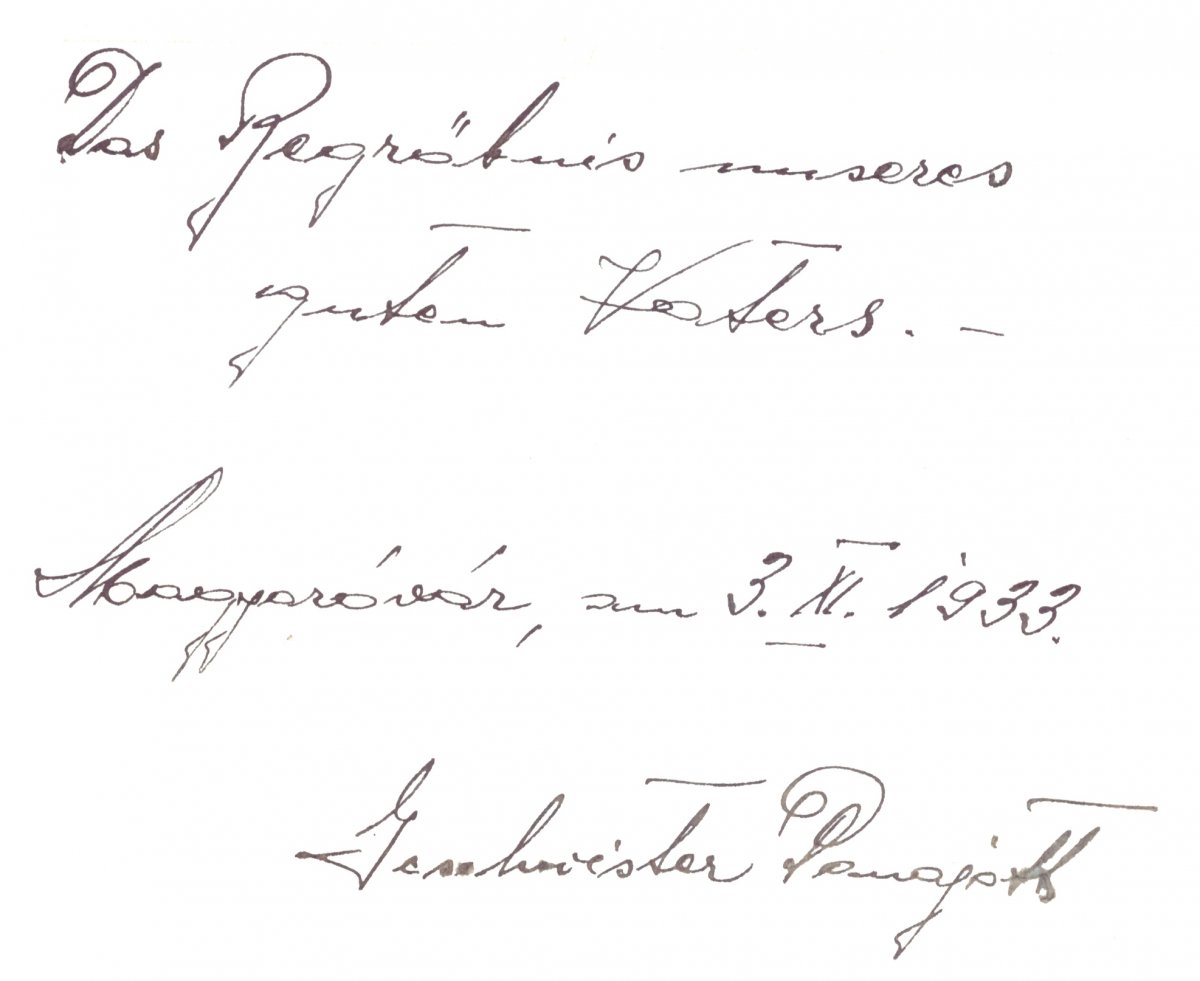 Das Begräbnis unseres
guten Vaters. –
Magyaróvár, am 3. XI. 1933.
Geschwister Panajott